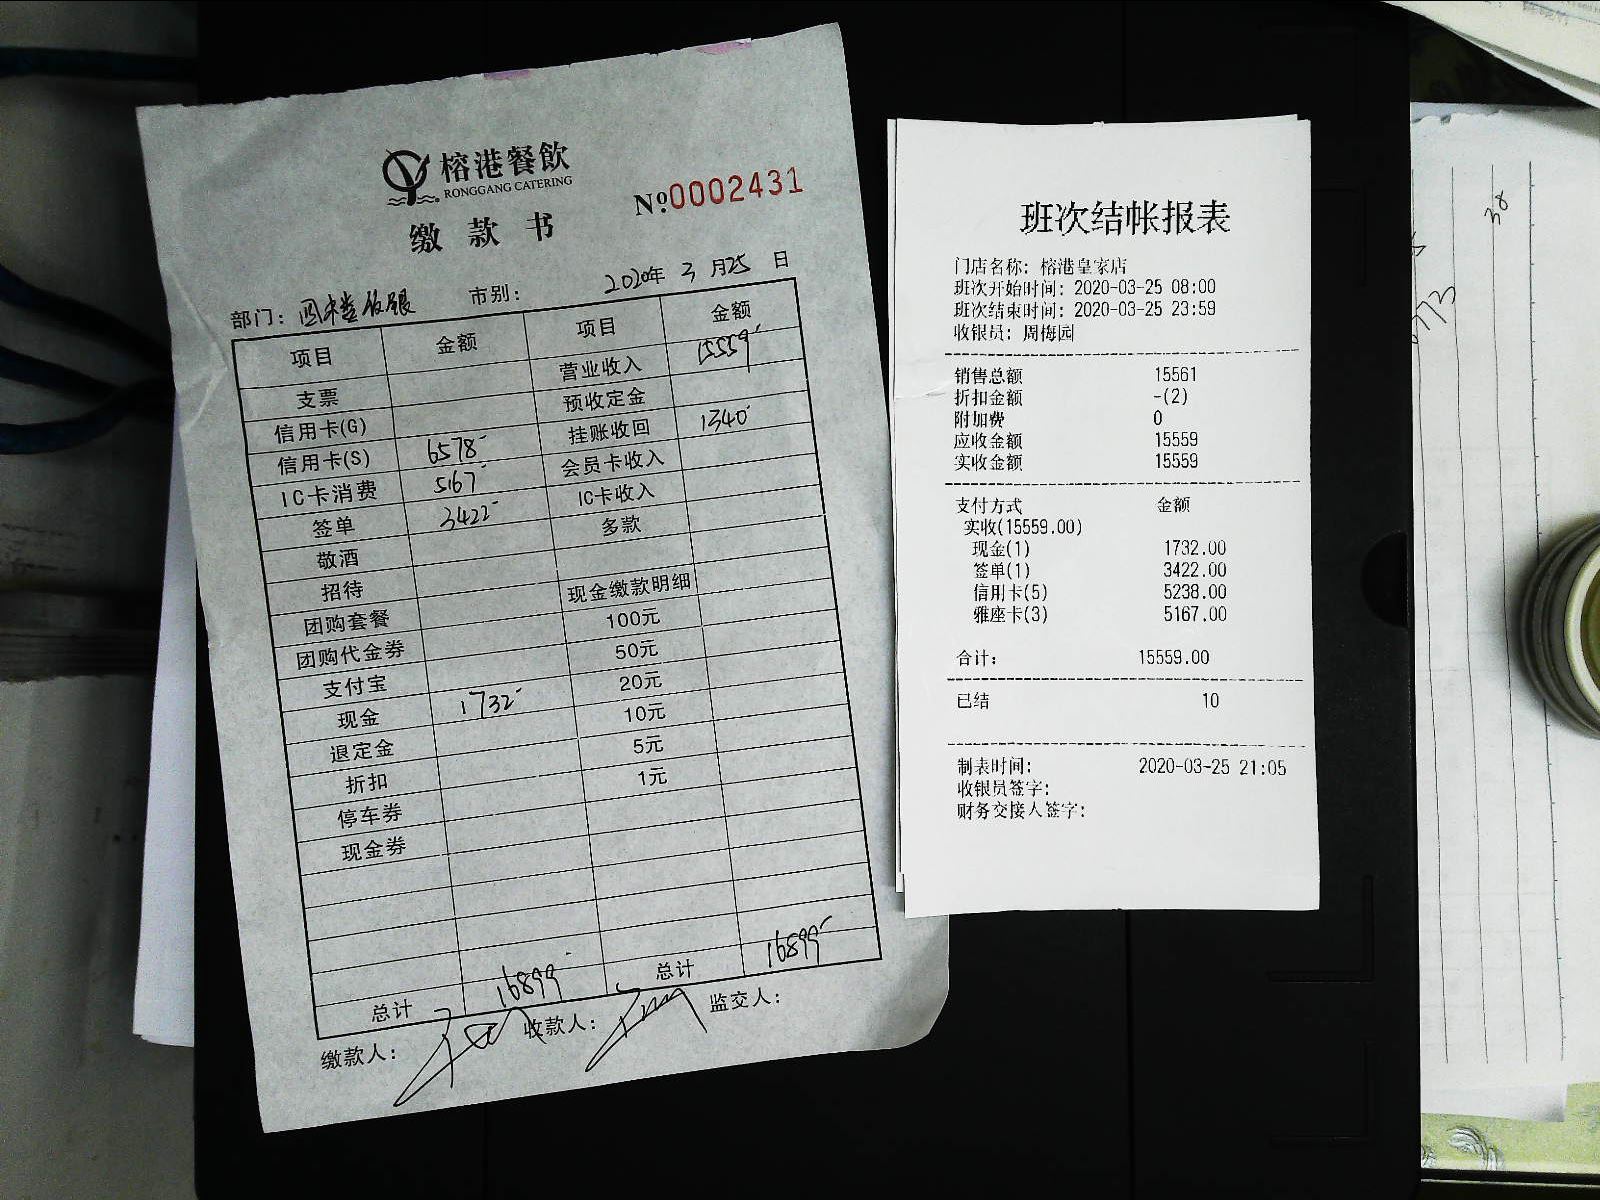 榕港餐飲
RONGGANG CATERING
缴款书
№0002431
部门: 市别: 2020年 3 月 25 日
项目 金额 项目 金额
支票 营业收入 15559
信用卡(G) 预收定金
信用卡(S) 6578 挂账收回 1340
IC卡消费 5167 会员卡收入
签单 3422 IC卡收入
敬酒 多款
招待
团购套餐 现金缴款明细
团购代金券 100元
支付宝 50元
现金 1732 20元
退定金 10元
折扣 5元
停车券 1元
现金券
总计 16899 总计 16899
缴款人: 收款人: 监交人:
班次结帐报表
门店名称: 榕港皇家店
班次开始时间: 2020-03-25 08:00
班次结束时间: 2020-03-25 23:59
收银员: 周梅园
销售总额 15561
折扣金额 -(2)
附加费 0
应收金额 15559
实收金额 15559
支付方式 金额
实收(15559.00)
现金(1) 1732.00
签单(1) 3422.00
信用卡(5) 5238.00
雅座卡(3) 5167.00
合计: 15559.00
已结 10
制表时间: 2020-03-25 21:05
收银员签字:
财务交接人签字:
38